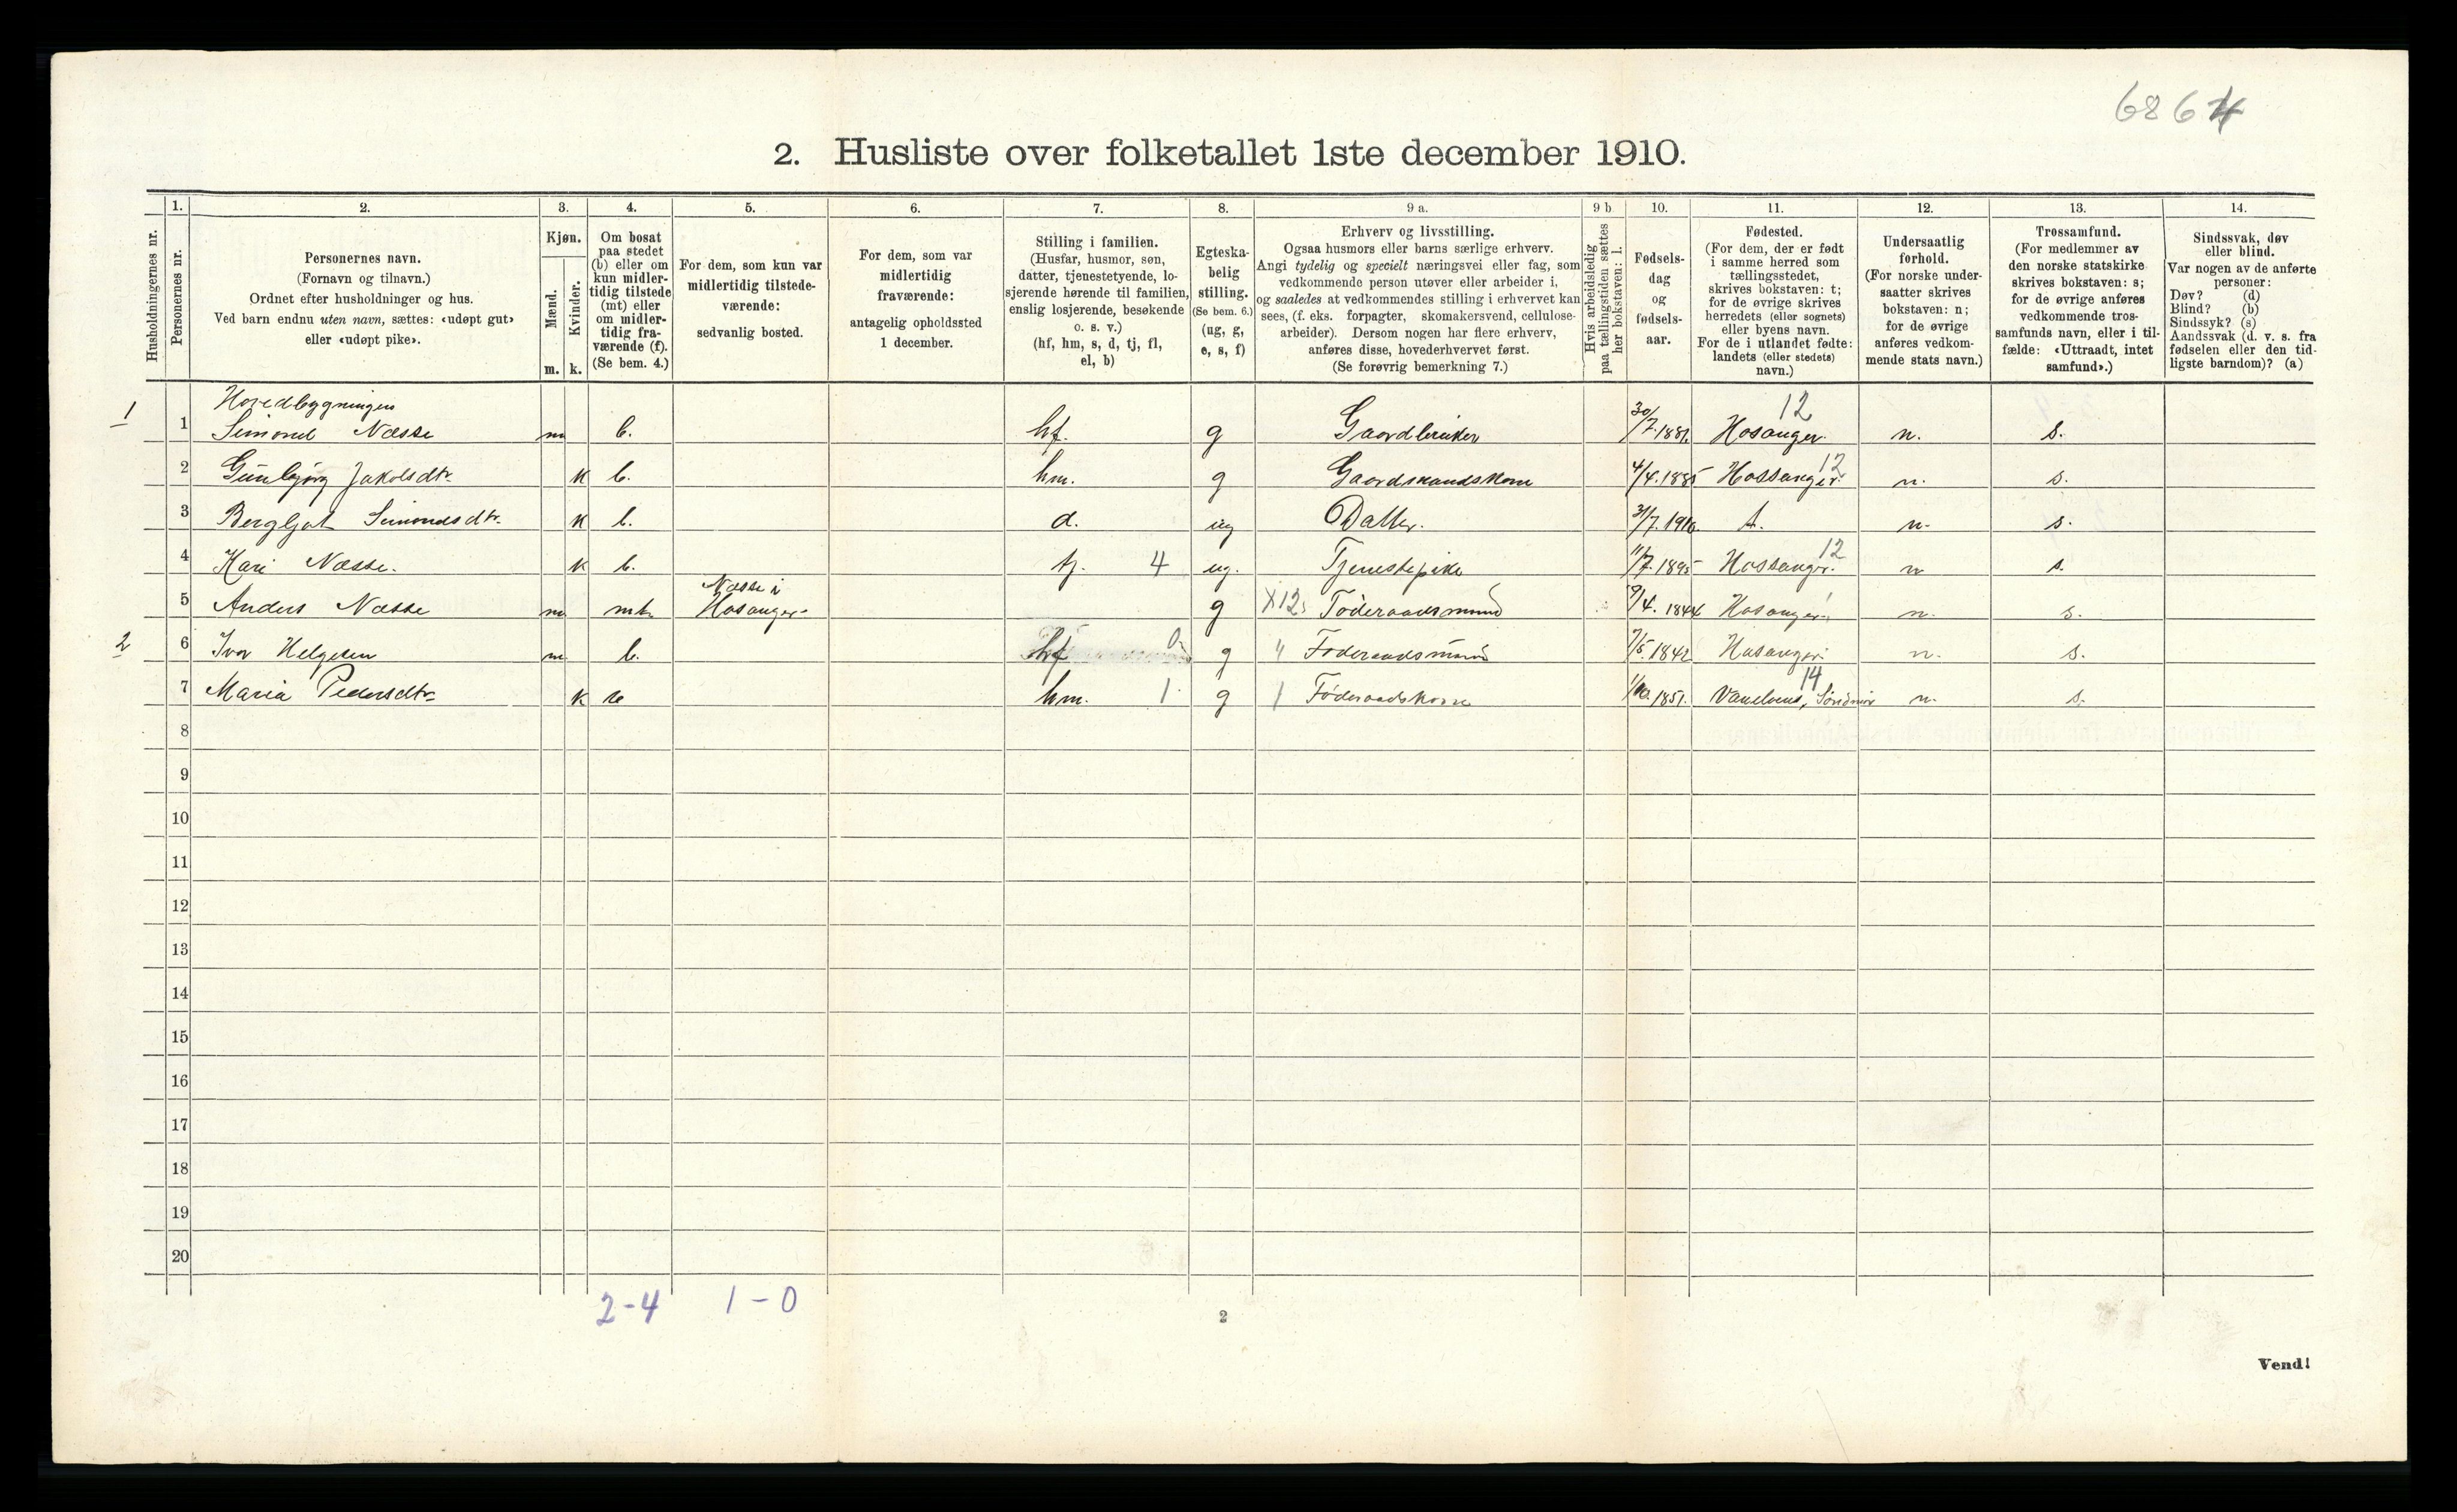 6864
2. Husliste over folketallet 1ste december 1910.
1. 2. 3. 4. 5. 6. 7. 8. 9 a. 9 b 10. 11. 12. 13. 14.
Husholdningernes nr.
Personernes nr.
Personernes navn.
(Fornavn og tilnavn.)
Ordnet efter husholdninger og hus.
Ved barn endnu uten navn, sættes: «udøpt gut»
eller «udøpt pike».
Kjøn.
Mænd.
Kvinder.
m. k.
Om bosat
paa stedet
(b) eller om
kun midler-
tidig tilstede
(mt) eller
om midler-
tidig fra-
værende (f).
(Se bem. 4.)
For dem, som kun var
midlertidig tilstede-
værende:
sedvanlig bosted.
For dem, som var
midlertidig
fraværende:
antagelig opholdssted
1 december.
Stilling i familien.
(Husfar, husmor, søn,
datter, tjenestetyende, lo-
sjerende hørende til familien,
enslig losjerende, besøkende
o. s. v.)
(hf, hm, s, d, tj, fl,
el, b)
Egteska-
belig
stilling.
(Se bem. 6.)
(ug, g,
e, s, f)
Erhverv og livsstilling.
Ogsaa husmors eller barns særlige erhverv.
Angi tydelig og specielt næringsvei eller fag, som
vedkommende person utøver eller arbeider i,
og saaledes at vedkommendes stilling i erhvervet kan
sees, (f. eks. forpagter, skomakersvend, cellulose-
arbeider). Dersom nogen har flere erhverv,
anføres disse, hovederhvervet først.
(Se forøvrig bemerkning 7.)
Hvis arbeidsledig
paa tællingstiden sættes
her bokstaven: l.
Fødsels-
dag
og
fødsels-
aar.
Fødested.
(For dem, der er født
i samme herred som
tællingsstedet,
skrives bokstaven: t;
for de øvrige skrives
herredets (eller sognets)
eller byens navn.
For de i utlandet fødte:
landets (eller stedets)
navn.)
Undersaatlig
forhold.
(For norske under-
saatter skrives
bokstaven: n;
for de øvrige
anføres vedkom-
mende stats navn.)
Trossamfund.
(For medlemmer av
den norske statskirke
skrives bokstaven: s;
for de øvrige anføres
vedkommende tros-
samfunds navn, eller i til-
fælde: «Uttraadt, intet
samfund».)
Sindssvak, døv
eller blind.
Var nogen av de anførte
personer:
Døv? (d)
Blind? (b)
Sindssyk? (s)
Aandssvak (d. v. s. fra
fødselen eller den tid-
ligste barndom)? (a)
Hovedbygningen 12
1 1 Simond Næsse m b. hf. g Gaardbruker 30/7.1881. Hosanger. n. s.
2 Gunbjørg Jakobsdtr. k b. hm. g Gaardmandskone 4/4.1885 Hossanger. 12 n. s.
3 Bergljot Simondsdtr. k b. d. ug Datter. 31/7.1910. t. n. s.
4 Kari Næsse. k b. tj. 4 ug. Tjenestepike 11/7.1895 Hossanger. 12 n s.
Næsse i
5 Anders Næsse m mt. Hosanger. g X12 Føderaadsmand 9/4.1844 Hosanger. n. s.
2 6 Ivar Helgesen m b. hf 0 g " Føderaadsmand 7/5.1842 Hosanger. n. s.
14
7 Maria Pedersdtr k b hm. 1 g 1 Føderaadskone 1/10.1851. Vanelven, Søndmør n. s.
8
9
10
11
12
13
14
15
16
17
18
19
20
2-4 1-0
2
Vend!